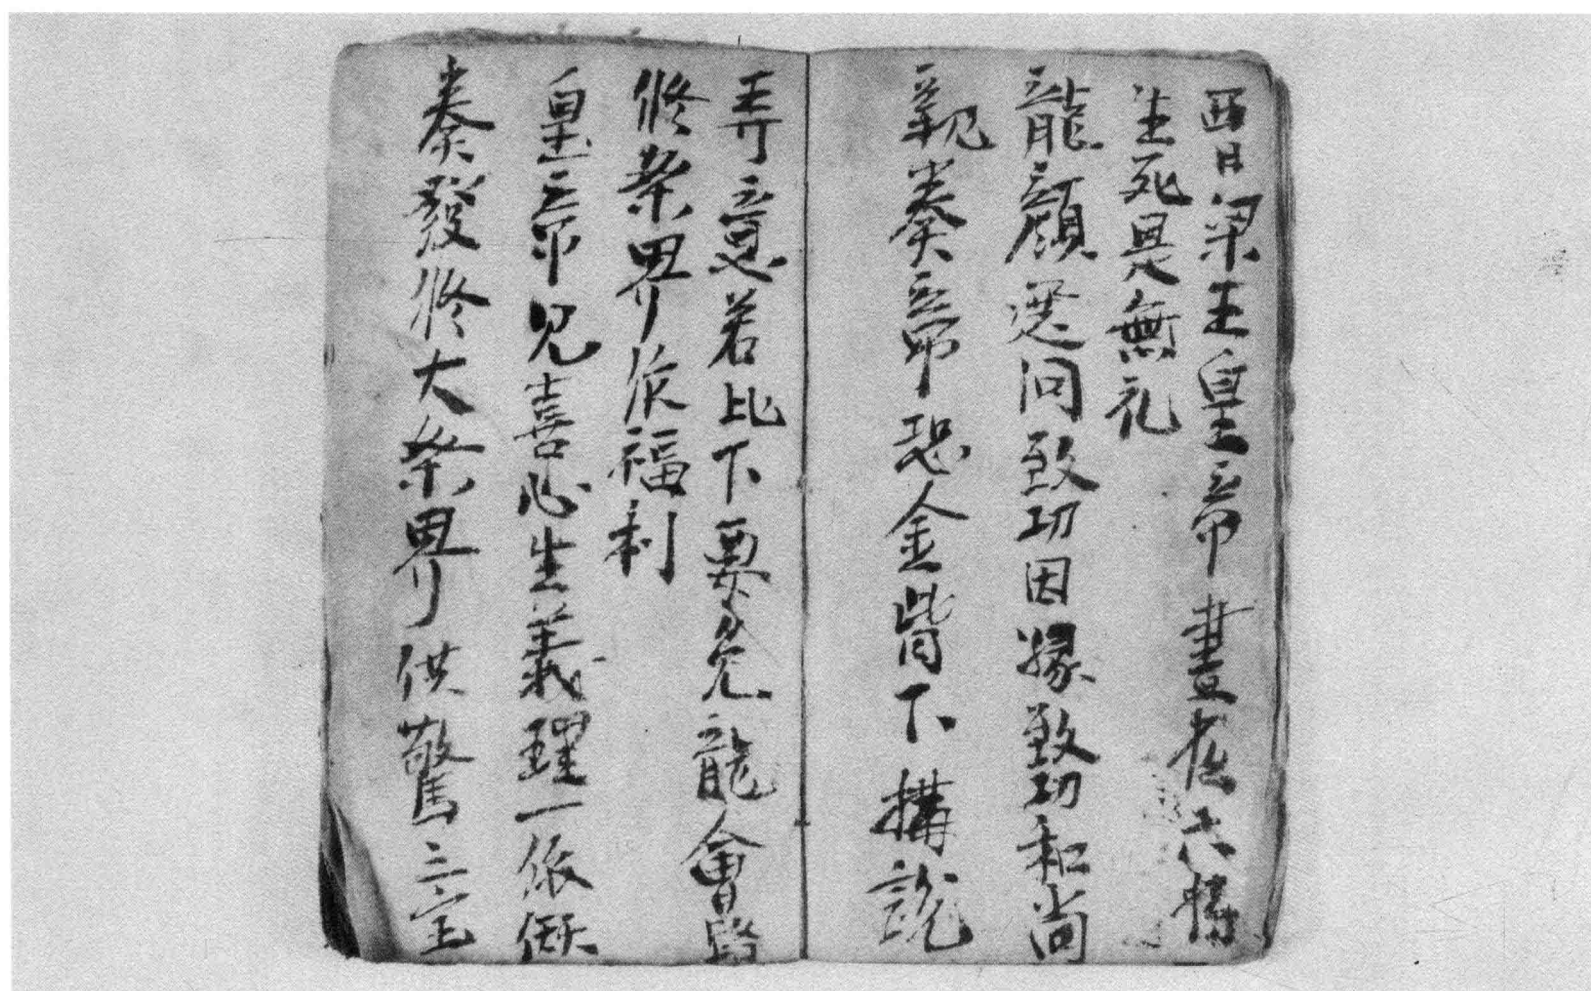 酉日梁王皇帝晝夜六時
生死是無礼
龍顏還问致功因緣致功和尚
親奏帝恐金皆下搆說
弄意若比下要免龍會
修祭界依福利
皇帝見喜心生義理一依
奏發修大祭界供驚三宝